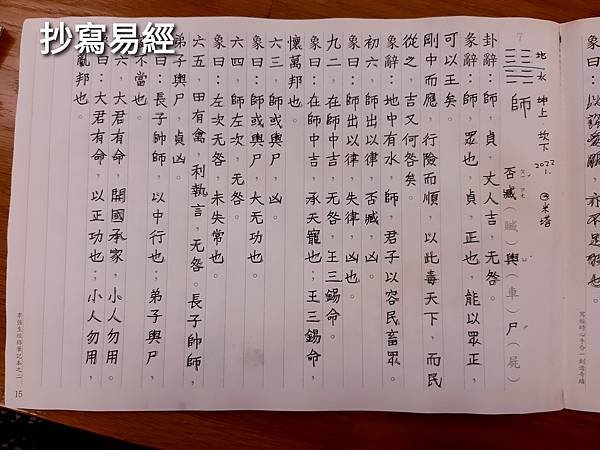 抄寫易經
以訟受服，亦不足敬也。
7
師
地水
坤上．坎下
2022
@米塔
否臧（臟）輿（車）尸（屍）
卦辭：師，貞，丈人吉，无咎。
彖辭：師，眾也，貞，正也，能以眾正，
可以王矣。
剛中而應，行險而順，以此毒天下，而民
從之，吉又何咎矣。
象辭：地中有水，師，君子以容民畜眾。
初六，師出以律，否臧，凶。
象曰：師出以律，失律，凶也。
九二，在師中吉，无咎，王三錫命。
象曰：在師中吉，承天寵也；王三錫命，
懷萬邦也。
六三，師或輿尸，凶。
象曰：師或輿尸，大无功也。
六四，師左次，无咎。
象曰：左次无咎，未失常也。
六五，田有禽，利執言，无咎。長子帥師，
弟子輿尸，貞凶。
象曰：長子帥師，以中行也；弟子輿尸，
不當也。
六，大君有命，開國承家，小人勿用。
曰：大君有命，以正功也；小人勿用，
亂邦也。
15